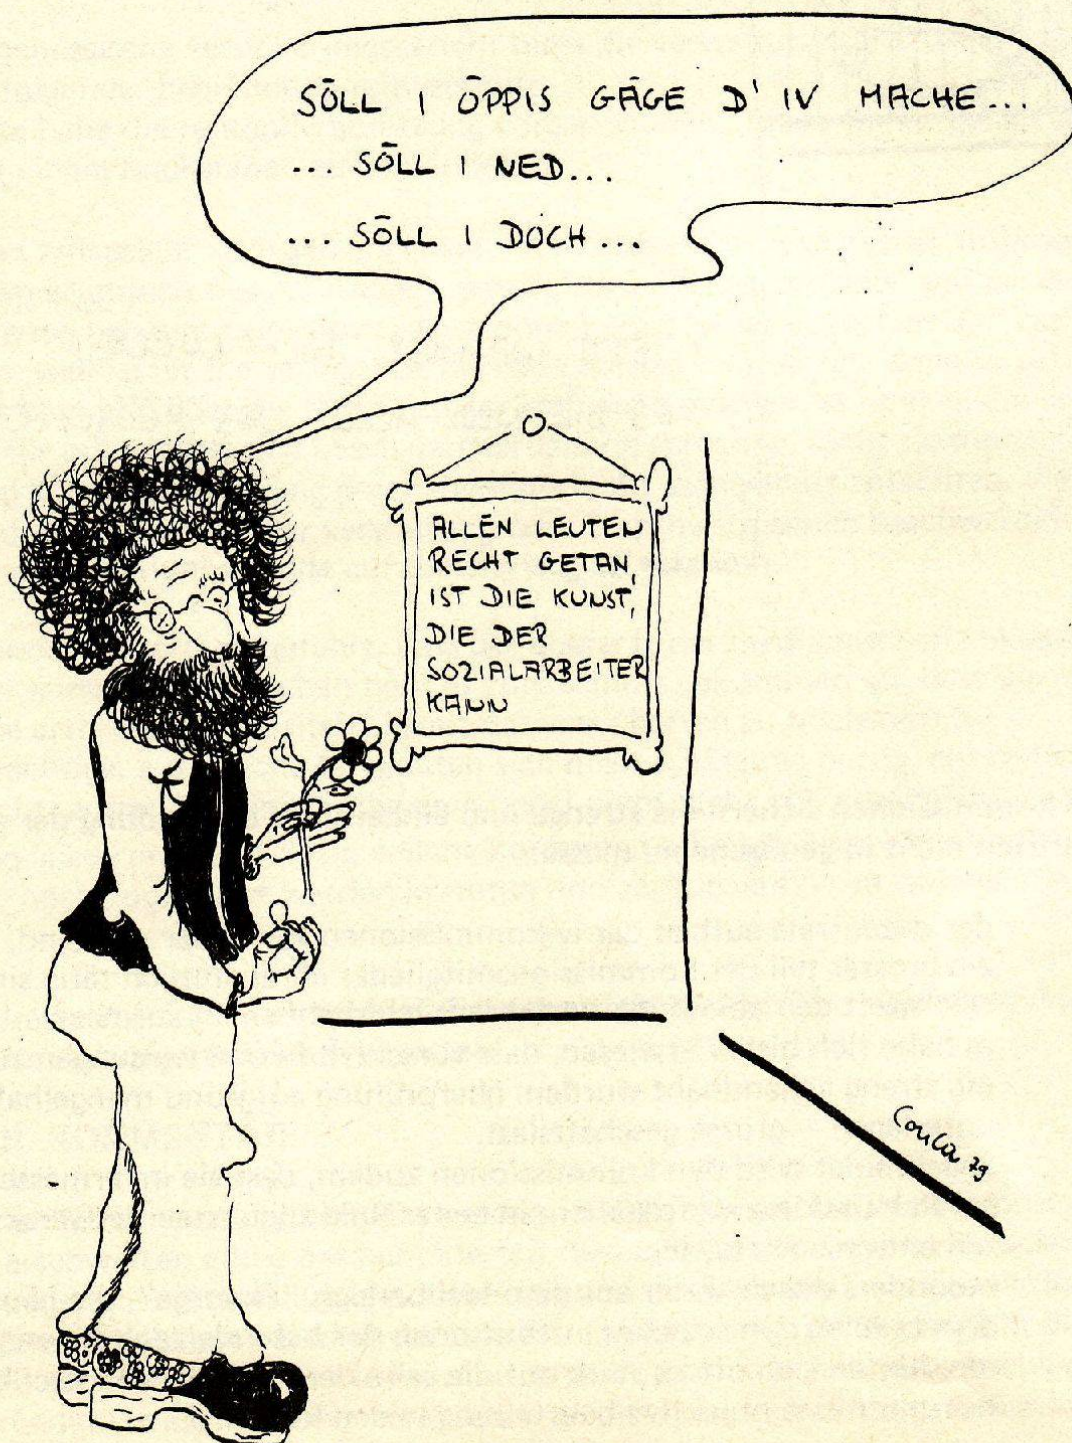 SÖLL I ÖPPIS GÄGE D' IV MACHE...
... SÖLL I NED...
... SÖLL I DOCH...
ALLEN LEUTEN
RECHT GETAN,
IST DIE KUNST,
DIE DER
SOZIALARBEITER
KANN
79